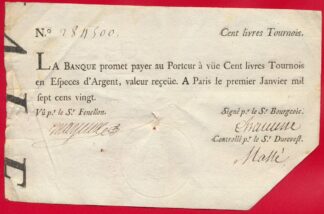 N.º 284500. Cent livres Tournois.
LA BANQUE promet payer au Porteur à vüe Cent livres Tournois
en Especes d'Argent, valeur reçeüe. A Paris le premier Janvier mil
sept cens vingt.
Vû p.r le S.r Fenellon. Signé p.r le S.r Bourgeois.
Controllé p.r le S.r Durevest.